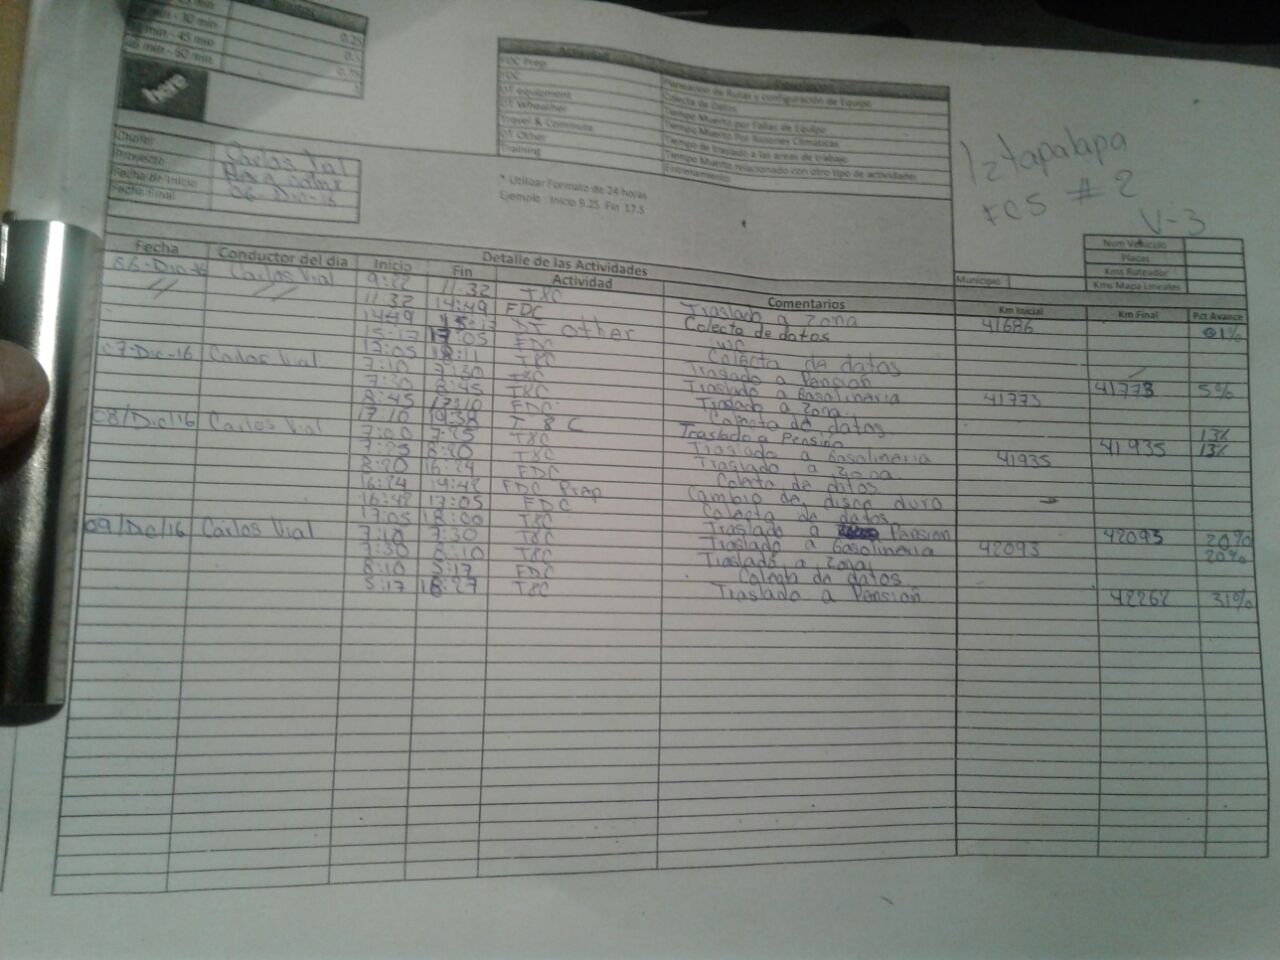 - 30 min 0.25
min - 45 min 0.5
46 min - 60 min 0.75
1
here
Actividad Descripcion
FDC Prep Planeacion de Rutas y configuración de Equipo
FDC Colecta de Datos
DT equipment Tiempo Muerto por Fallas de Equipo
DT Wheather Tiempo Muerto Por Razones Climaticas
Travel & Commute Tiempo de traslado a las areas de trabajo
DT Other Tiempo Muerto relacionado con otro tipo de actividades
Training Entrenamiento
* Utilizar Formato de 24 horas
Ejemplo Inicio 9.25 Fin 17.5
Iztapalapa
FCS # 2
V-3
Chofer Carlos Vial
Proyecto
Fecha de Inicio 06 Dic-16
Fecha Final
Num Vehiculo
Placas
Kms Ruteador
Kms Mapa Lineales
Municipio
Detalle de las Actividades
Fecha Conductor del dia Inicio Fin Actividad Comentarios Km Inicial Km Final Pct Avance
06-Dic-16 Carlos Vial 9:22 11:32 T&C Traslado a Zona 41686
" " 11:32 14:49 FDC Colecta de datos 01%
14:49 15:17 DT other WC
15:17 17:05 FDC Colecta de datos
17:05 18:11 T&C Traslado a Pension 41773 5%
07-Dic-16 Carlos Vial 7:10 7:30 T&C Traslado a Gasolineria 41773
7:30 8:45 T&C Traslado a Zona
8:45 17:10 FDC Colecta de datos 13%
17:10 19:38 T&C Traslado a Pension 41935 13%
08/Dic/16 Carlos Vial 7:00 7:25 T&C Traslado a Gasolineria 41935
7:25 8:20 T&C Traslado a Zona
8:20 16:24 FDC Colecta de datos
16:24 FDC Prep Cambio de disco duro
16:48 17:05 FDC Colecta de datos
17:05 18:00 T&C Traslado a Pension 42093 20%
09/Dic/16 Carlos Vial 7:10 7:30 T&C Traslado a Gasolineria 42093 20%
7:30 8:10 T&C Traslado a Zona
8:10 5:17 FDC Colecta de datos
5:17 18:27 T&C Traslado a Pension 42262 31%